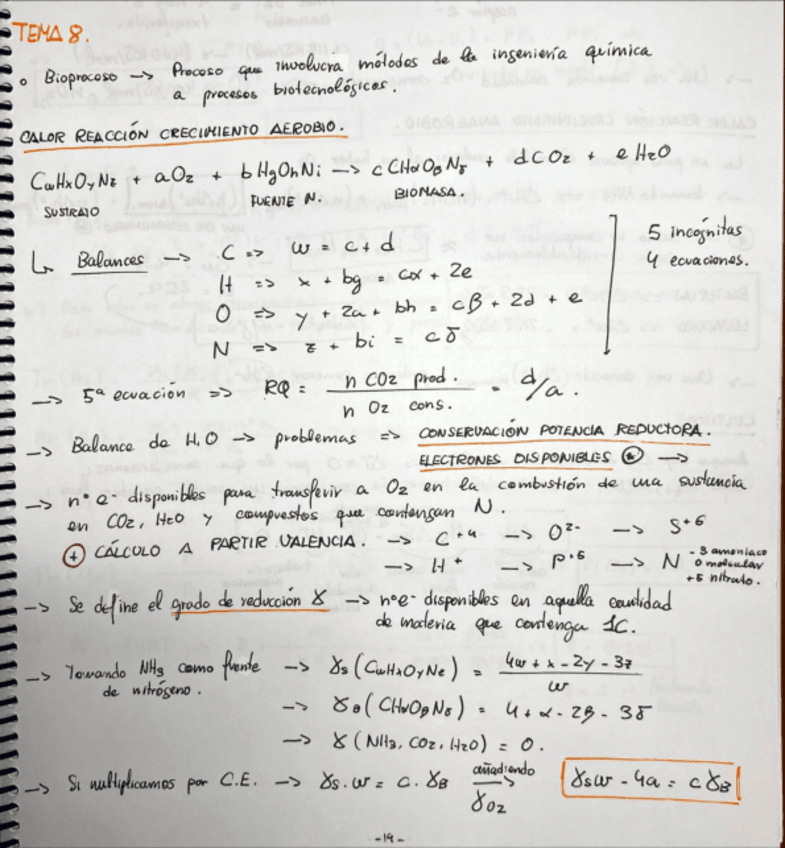 TEMA 8.
o Bioproceso —> Proceso que involucra métodos de la ingeniería química
a procesos biotecnológicos.
CALOR REACCIÓN CRECIMIENTO AEROBIO.
CwHxOyNz + aO2 + bHgOhNi —> cCHαOβNδ + dCO2 + eH2O
SUSTRATO FUENTE N. BIOMASA.
↳ Balances —> C => w = c + d
H => x + bg = cα + 2e
O => y + 2a + bh = cβ + 2d + e
N => z + bi = cδ
5 incógnitas
4 ecuaciones.
—> 5ª ecuación => RQ = n CO2 prod. / n O2 cons. = d/a.
—> Balance de H, O —> problemas => CONSERVACIÓN POTENCIA REDUCTORA.
ELECTRONES DISPONIBLES (*) —>
—> nº e- disponibles para transferir a O2 en la combustión de una sustancia
en CO2, H2O y compuestos que contengan N.
(*) CÁLCULO A PARTIR VALENCIA. —> C+4 —> O2- —> S+6
—> H+ —> P+5 —> N -3 amoniaco
0 molecular
+5 nitrato.
—> Se define el grado de reducción γ —> nº e- disponibles en aquella cantidad
de materia que contenga 1C.
—> Tomando NH3 como fuente —> γs (CwHxOyNz) = 4w + x - 2y - 3z / w
de nitrógeno. —> γB (CHαOβNδ) = 4 + α - 2β - 3δ
—> γ (NH3, CO2, H2O) = 0.
—> Si multiplicamos por C.E. —> γs . w = c . γB añadiendo —> γO2 γsw - 4a = cγB
-19-